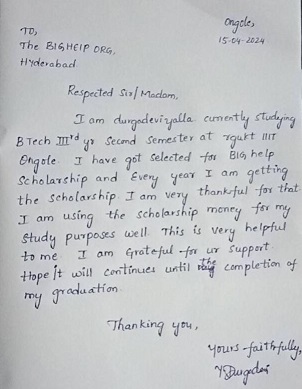 Ongole,
15-04-2024
TO,
The BIGHELP ORG,
Hyderabad
Respected Sir/Madam,
I am durgadeviyalla currently studying
BTech IIIrd yr Second Semester at rgukt IIIT
Ongole. I have got Selected for BIG help
Scholarship and Every year I am getting
the scholarship. I am very thankful for that
I am using the scholarship money for my
Study purposes well. This is very helpful
to me I am Grateful for ur support.
Hope It will continues until the completion of
my graduation.
Thanking you,
yours faithfully,
Y.Durgadevi